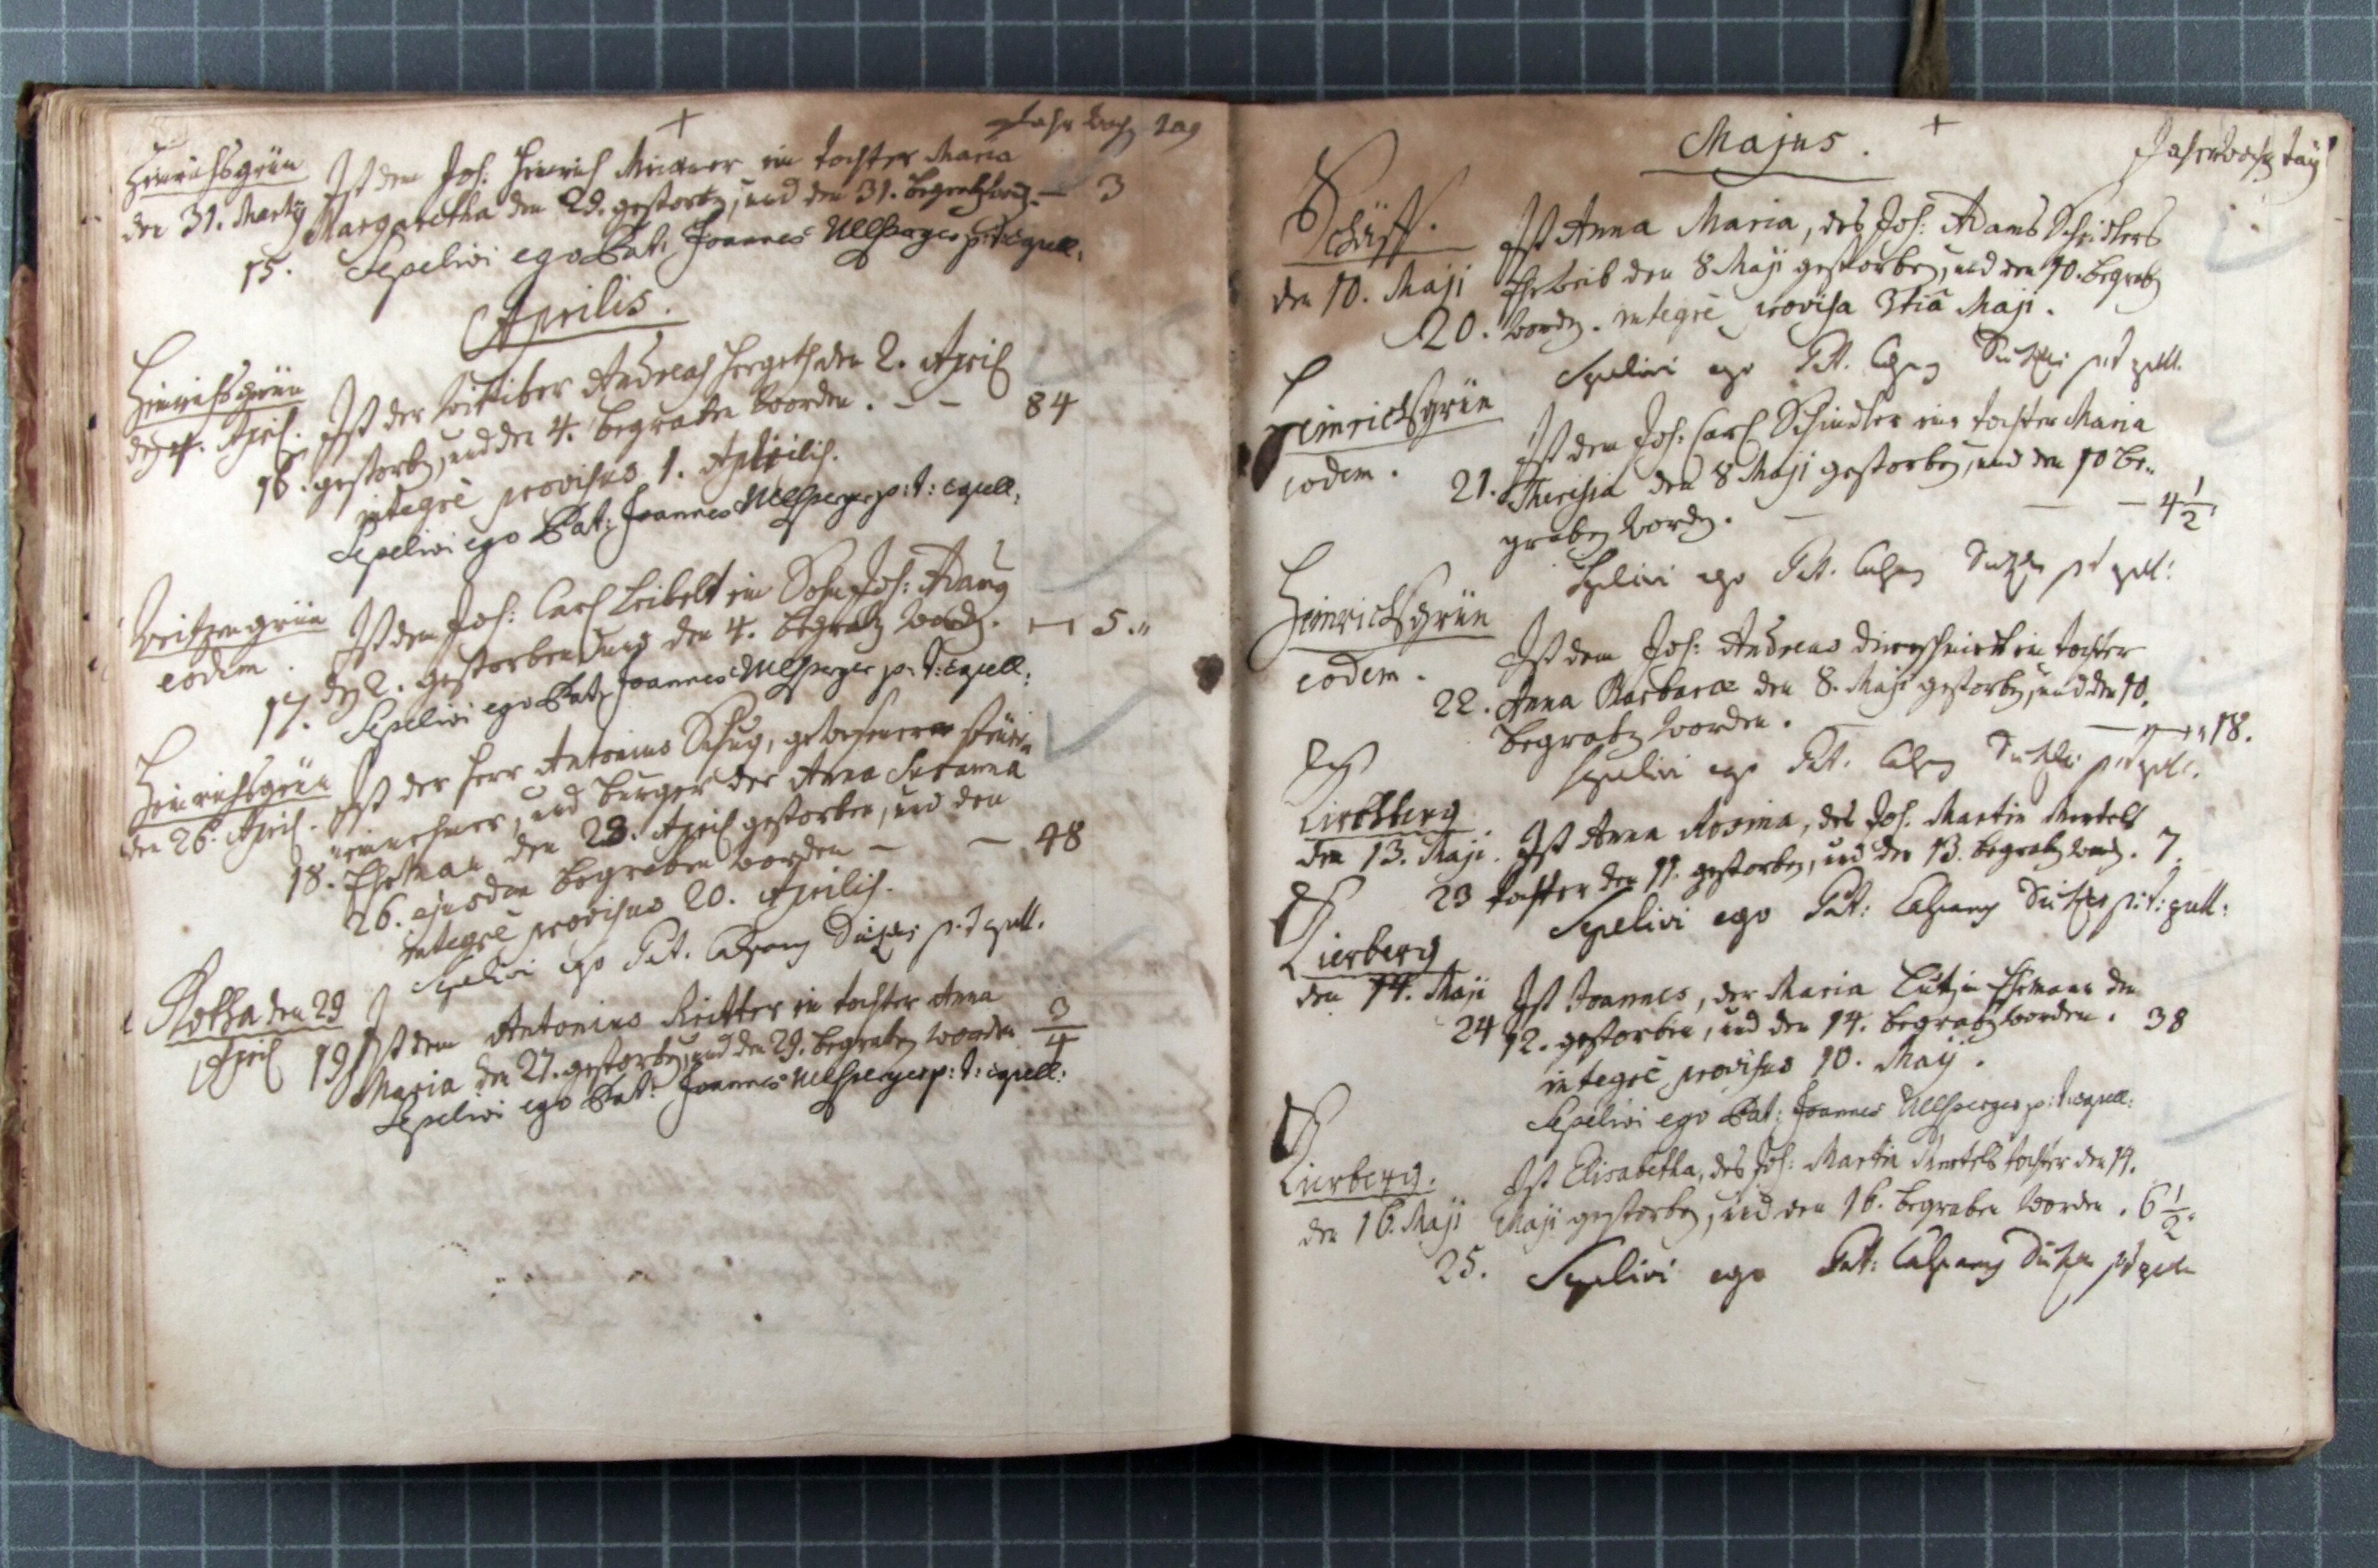 +
Jahr Woch Tag
Heinrichsgrün Ist dem Joh: Heinrich ein tochter Maria
den 31. Martij Margaretha den 29. gestorben, und den 31. begraben word. — 3
15. Sepelivi ego Pat: Joannes Ullsperger p: t: Capell:
Aprilis.
Heinrichsgrün Ist der Wittiber Andreas Hergeth den 2. April
den 4. April. gestorben, und den 4. begraben worden. – – 84
16. integrè provisus 1. Aprilis.
Sepelivi ego Pat: Joannes Ullsperger p: t: Capell:
Waitzengrün Ist dem Joh: Carl Leibelt ein Sohn Joh: Adam
eodem. den 2. gestorben und den 4. begraben word. 5.
17. Sepelivi ego Pat: Joannes Ullsperger p: t: Capell:
Heinrichsgrün Ist der Herr Antonius Schug, gewesener
den 26. April. einnehmer, und burger der Anna Susanna
18. Eheman den 23. April gestorben, und den
26. ejusdem begraben worden — — 48
integrè provisus 20. Aprilis.
Sepelivi ego Pat. p: t. Capell.
Rotha den 29 Ist dem Antonius Ritter ein tochter Anna
April 19 Maria den 27. gestorben, und den 29. begraben worden 3/4
Sepelivi ego Pat: Joannes Ullsperger p: t: Capell:
Majus. +
Jahr Woch Tag
Schäff. Ist Anna Maria, des Joh: Adams Schindlers
den 10. Maji Eheweib den 8 Maji gestorben, und den 10. begraben
20. worden. integrè provisa 3tiâ Maji.
Sepelivi ego Pat. p: t Capell.
Heinrichsgrün Ist dem Joh: Carl Schindler ein tochter Maria
eodem. 21. Theresia den 8 Maji gestorben, und den 10 be-
graben worden. — — — 4 1/2
Sepelivi ego Pat. p: t Capell:
Heinrichsgrün Ist dem Joh: Andreas ein tochter
eodem. 22. Anna Barbara den 8. Maji gestorben, und den 10.
begraben worden. — — 18.
Sepelivi ego Pat. p: t Capell.
Kirchberg
den 13. Maji. Ist Anna Rosina, des Joh. Martin Mertels
23 tochter den 11. gestorben, und den 13. begraben word. 7.
Sepelivi ego Pat: p: t: Capell:
Kirberg
den 14. Maji Ist Joannes, der Maria Ehemann den
24 12. gestorben, und den 14. begraben worden. 38
integrè provisus 10. Maij.
Sepelivi ego Pat: Joannes Ullsperger p: t: Capell:
Kirberg. Ist Elisabetha, des Joh: Martin Mertels tochter den 14.
den 16. Maji Maji gestorben, und den 16. begraben worden. 6 1/2.
25. Sepelivi ego Pat: p: t Capell